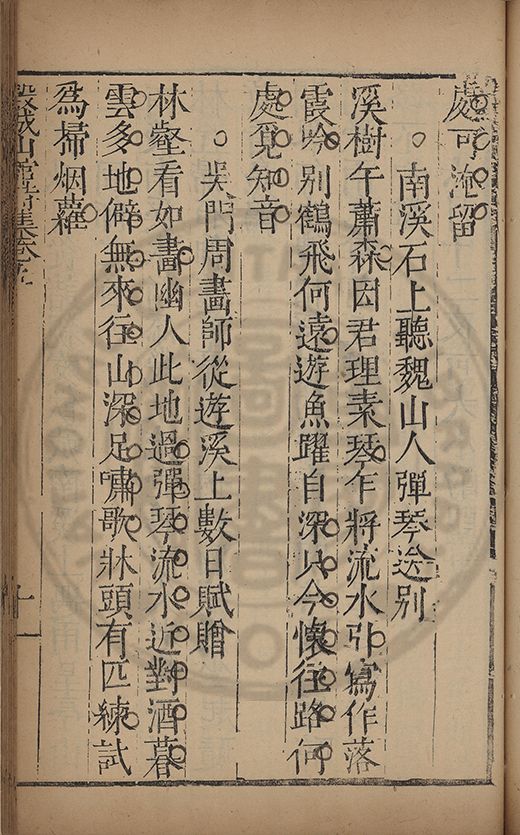 處可淹留
○南溪石上聽魏山人彈琴送別
溪樹午蕭森因君理素琴乍將流水引寫作落
霞吟別鶴飛何遠遊魚躍自深只今懷往路何
處覓知音
○吳門周畫師從遊溪上數日賦贈
林壑看如畫幽人此地過彈琴流水近對酒暮
雲多地僻無來往山深足嘯歌牀頭有匹練試
爲掃烟蘿
穀城山館詩集卷之
十一